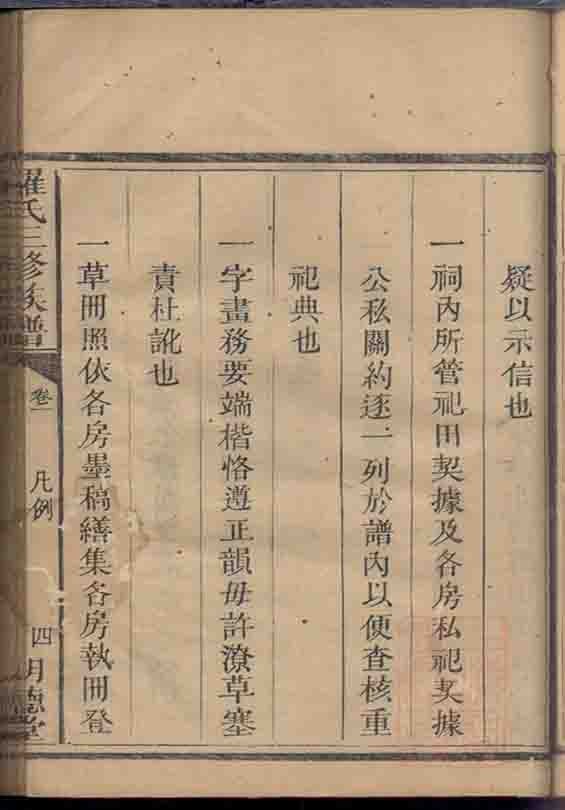 疑以示信也
一祠內所管祀田契據及各房私祀契據
公私關約逐一列於譜內以便查核重
祀典也
一字畫務要端楷恪遵正韻毋許潦草塞
責杜訛也
一草冊照依各房墨稿繕集各房執冊登
羅氏三修族譜 卷一 凡例 四 明德堂